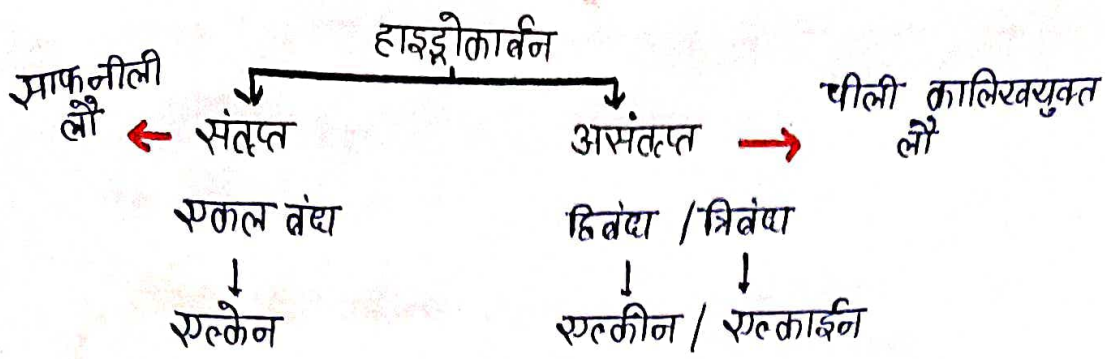 हाइड्रोकार्बन
साफ नीली
लौ ← संतृप्त
असंतृप्त → पीली कालिखयुक्त
लौ
एकल बंध
द्विबंध / त्रिबंध
↓ ↓ ↓
एल्केन
एल्कीन / एल्काईन